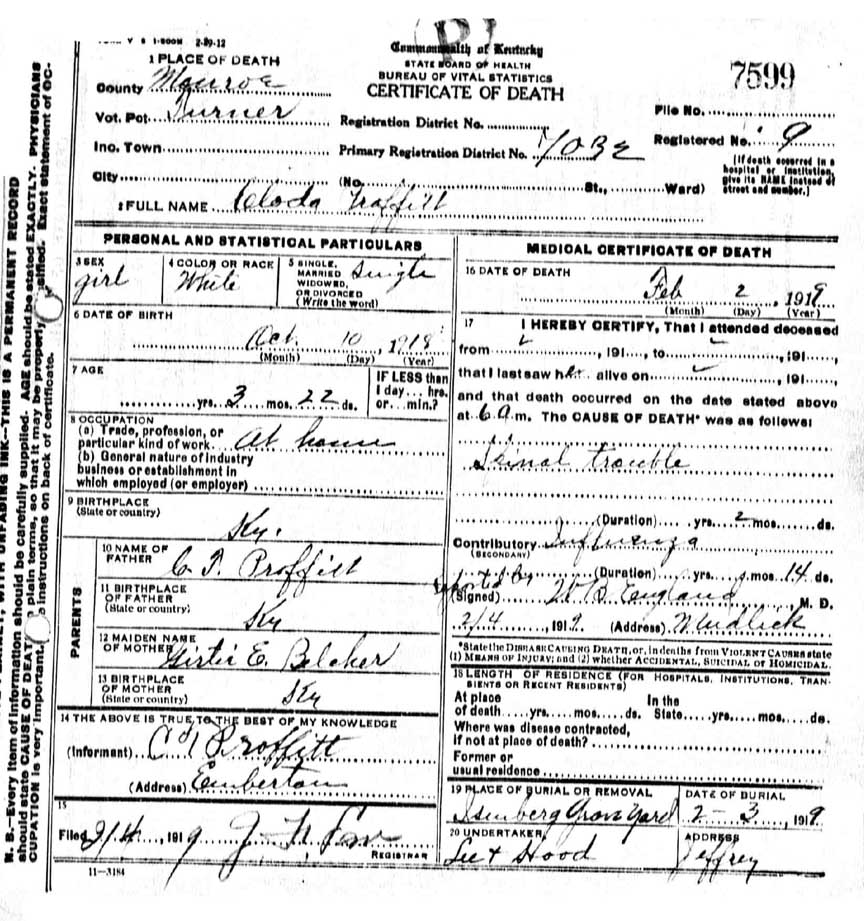 V S 1-500M 2-29-12
Commonwealth of Kentucky
STATE BOARD OF HEALTH
BUREAU OF VITAL STATISTICS
CERTIFICATE OF DEATH
7599
1 PLACE OF DEATH
County Monroe
Vot. Pct. Turner
Inc. Town
City
Registration District No.
Primary Registration District No. 7032
(No. St., Ward)
File No.
Registered No. 9
[If death occurred in a
hospital or institution,
give its NAME instead of
street and number.]
2 FULL NAME Cloda Proffitt
PERSONAL AND STATISTICAL PARTICULARS
3 SEX
girl
4 COLOR OR RACE
White
5 SINGLE,
MARRIED
WIDOWED,
OR DIVORCED
(Write the word)
Single
6 DATE OF BIRTH
Oct. 10, 1918
(Month) (Day) (Year)
7 AGE
yrs. 3 mos. 22 ds.
IF LESS than
1 day... hrs.
or... min.?
8 OCCUPATION
(a) Trade, profession, or
particular kind of work At home
(b) General nature of industry
business or establishment in
which employed (or employer)
9 BIRTHPLACE
(State or country)
Ky.
PARENTS
10 NAME OF
FATHER C. T. Proffitt
11 BIRTHPLACE
OF FATHER
(State or country)
Ky
12 MAIDEN NAME
OF MOTHER E. Belcher
13 BIRTHPLACE
OF MOTHER
(State or country)
Ky
14 THE ABOVE IS TRUE TO THE BEST OF MY KNOWLEDGE
(Informant) C T Proffitt
(Address) Emberton
15
Filed 2/4 1919
REGISTRAR
11—3184
MEDICAL CERTIFICATE OF DEATH
16 DATE OF DEATH
Feb 2, 1919
(Month) (Day) (Year)
17 I HEREBY CERTIFY, That I attended deceased
from , 191...., to , 191....,
that I last saw her alive on , 191....,
and that death occurred on the date stated above
at 6 a.m. The CAUSE OF DEATH* was as follows:
Spinal trouble
(Duration) yrs. 2 mos. ds.
Contributory Influenza
(SECONDARY)
(Duration) yrs. mos. 14 ds.
(Signed) W B England, M. D.
2/4, 1919 (Address) Mudlick
*State the DISEASE CAUSING DEATH, or, in deaths from VIOLENT CAUSES state
(1) MEANS OF INJURY; and (2) whether ACCIDENTAL, SUICIDAL or HOMICIDAL.
18 LENGTH OF RESIDENCE (FOR HOSPITALS, INSTITUTIONS, TRAN-
SIENTS OR RECENT RESIDENTS)
At place In the
of death yrs. mos. ds. State yrs. mos. ds.
Where was disease contracted,
If not at place of death?
Former or
usual residence
19 PLACE OF BURIAL OR REMOVAL
Isenberg Grave Yard
DATE OF BURIAL
2—3, 1919
20 UNDERTAKER
Lee & Hood
ADDRESS
Jeffrey
N. B.—Every item of information should be carefully supplied. AGE should be stated EXACTLY. PHYSICIANS
should state CAUSE OF DEATH plain terms, so that it may be properly Exact statement of OC-
CUPATION is very important. instructions on back of certificate.
UNFADING INK—THIS IS A PERMANENT RECORD